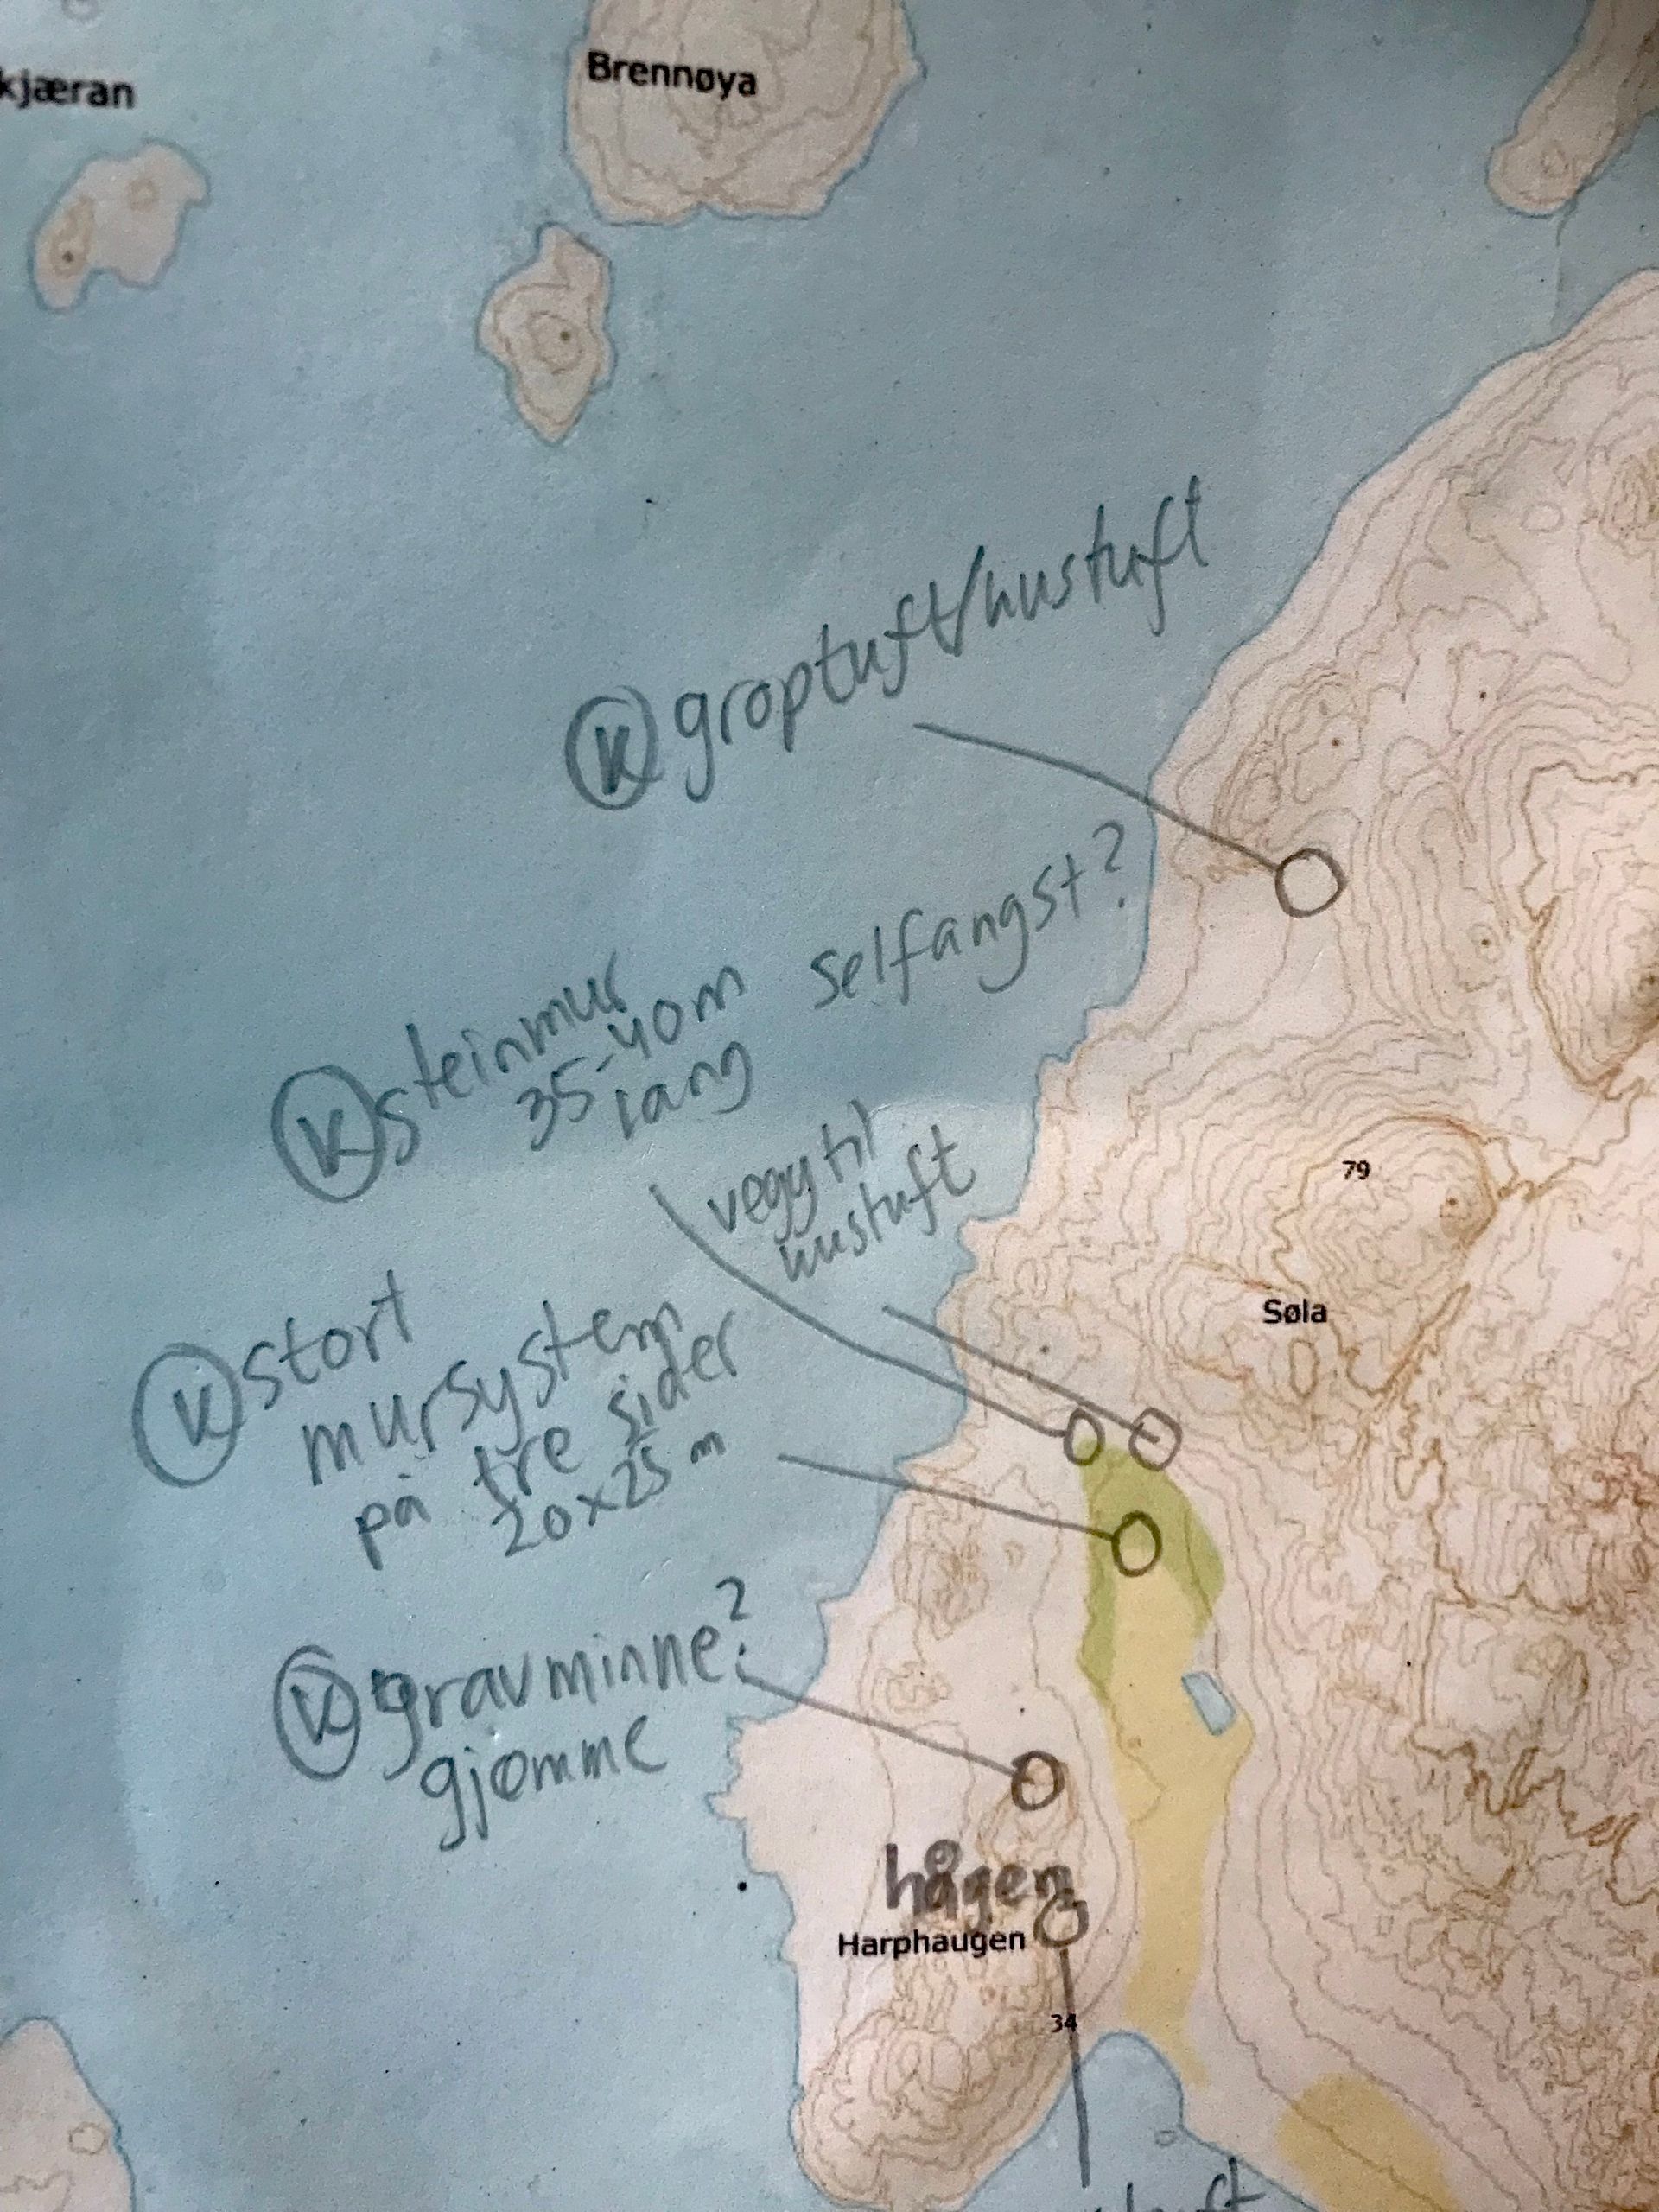 kjæran
Brennøya
K groptuft/hustuft
K steinmur
35-40m selfangst?
lang
vegg til
hustuft
79
Søla
K stort
mursystem
på tre sider
20x25 m
K gravminne?
gjømme
hågen
Harphaugen
34